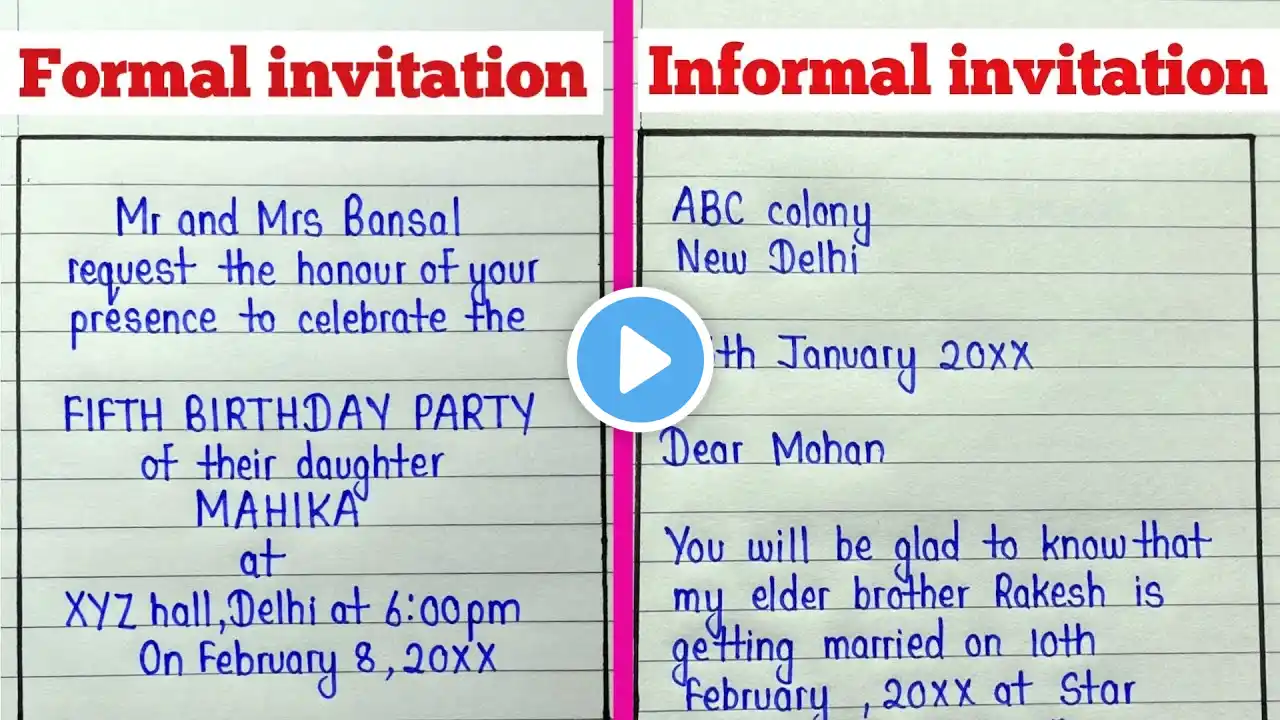 Formal invitation
Mr and Mrs Bansal
request the honour of your
presence to celebrate the
FIFTH BIRTHDAY PARTY
of their daughter
MAHIKA
at
XYZ hall, Delhi at 6:00pm
On February 8, 20XX
Informal invitation
ABC colony
New Delhi
January 20XX
Dear Mohan
You will be glad to know that
my elder brother Rakesh is
getting married on 10th
February , 20XX at Star